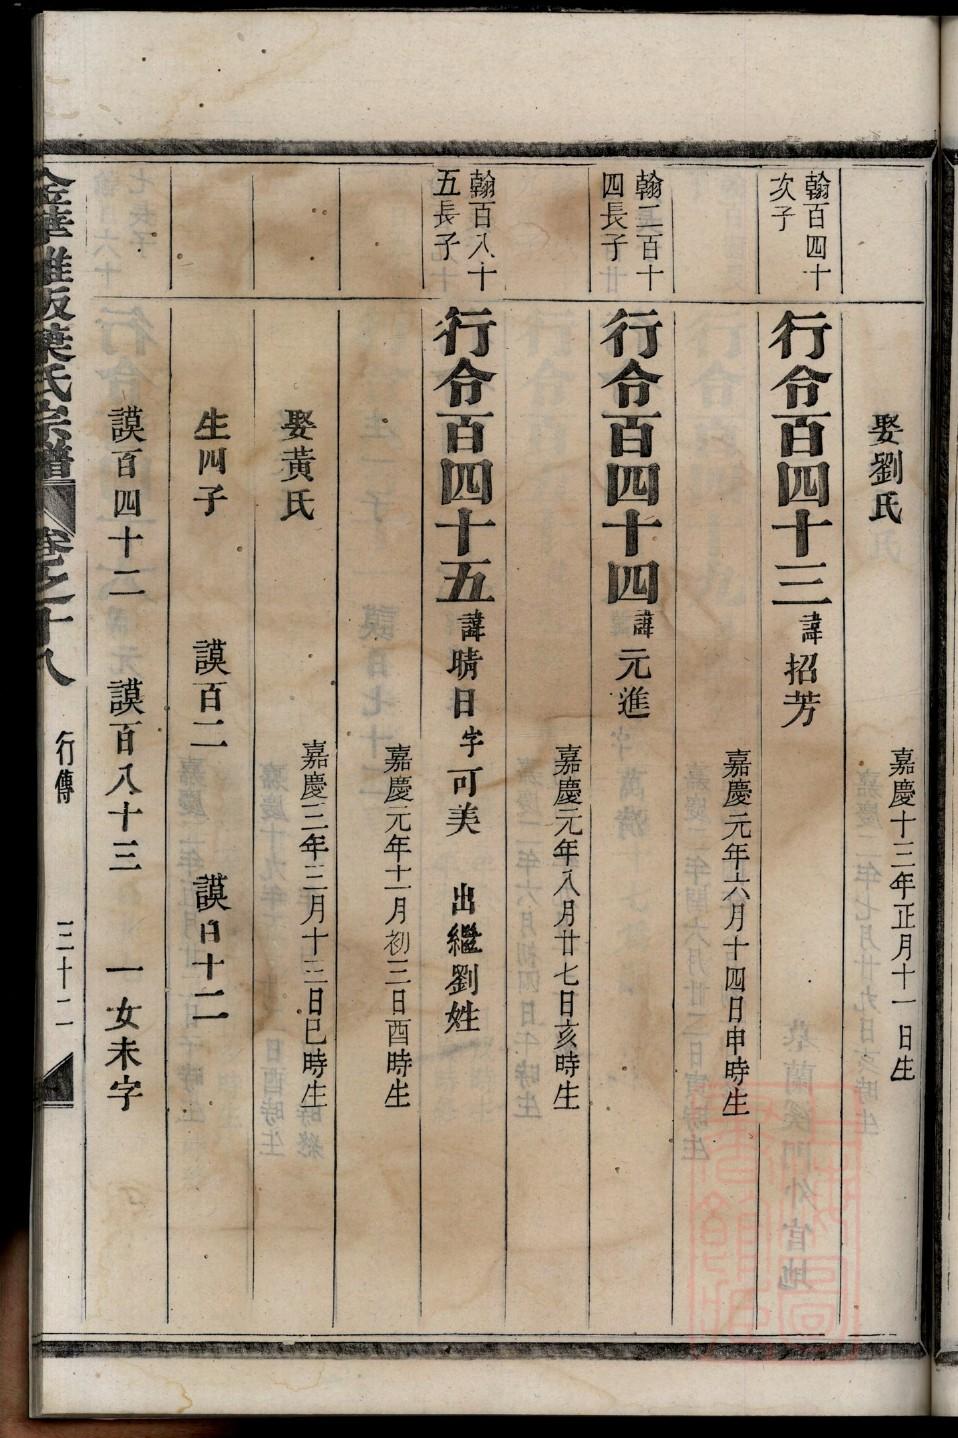 娶劉氏
嘉慶十三年正月十一日生
翰百四十
次子
行令百四十三諱招芳
嘉慶元年六月十四日申時生
翰二百十
四長子
行令百四十四諱元進
嘉慶元年八月廿七日亥時生
翰百八十
五長子
行令百四十五諱晴日字可美 出繼劉姓
嘉慶元年十一月初三日酉時生
娶黃氏
嘉慶三年三月十三日巳時生
生四子 謨百二 謨百十二
謨百四十二 謨百八十三 一女未字
金華雅畈葉氏宗譜 卷之十八 行傳 三十二